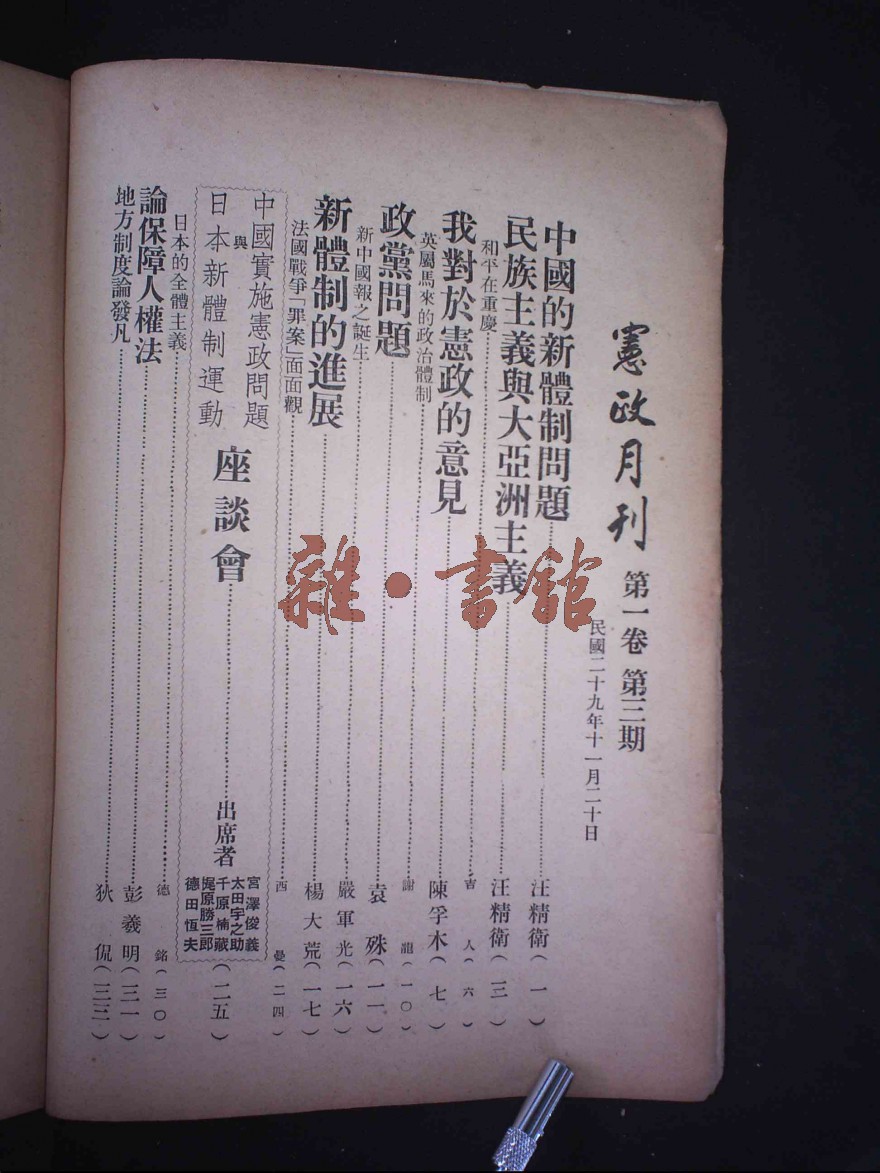 憲政月刊 第一卷 第三期
民國二十九年十一月二十日
中國的新體制問題 汪精衛(一)
民族主義與大亞洲主義 汪精衛(三)
和平在重慶 吉人(六)
我對於憲政的意見 陳孚木(七)
英屬馬來的政治體制 謝龍(一〇)
政黨問題 袁殊(一一)
新中國報之誕生 嚴軍光(一六)
新體制的進展 楊大荒(一七)
法國戰爭「罪案」面面觀 西曼(二四)
中國實施憲政問題
與
日本新體制運動
座談會 出席者
宮澤俊義
太田宇之助
千原楠藏
梶原勝三郎
德田恆夫
(二五)
日本的全體主義 德銘(三〇)
論保障人權法 彭羲明(三一)
地方制度論發凡 狄侃(三三)
雜·書館